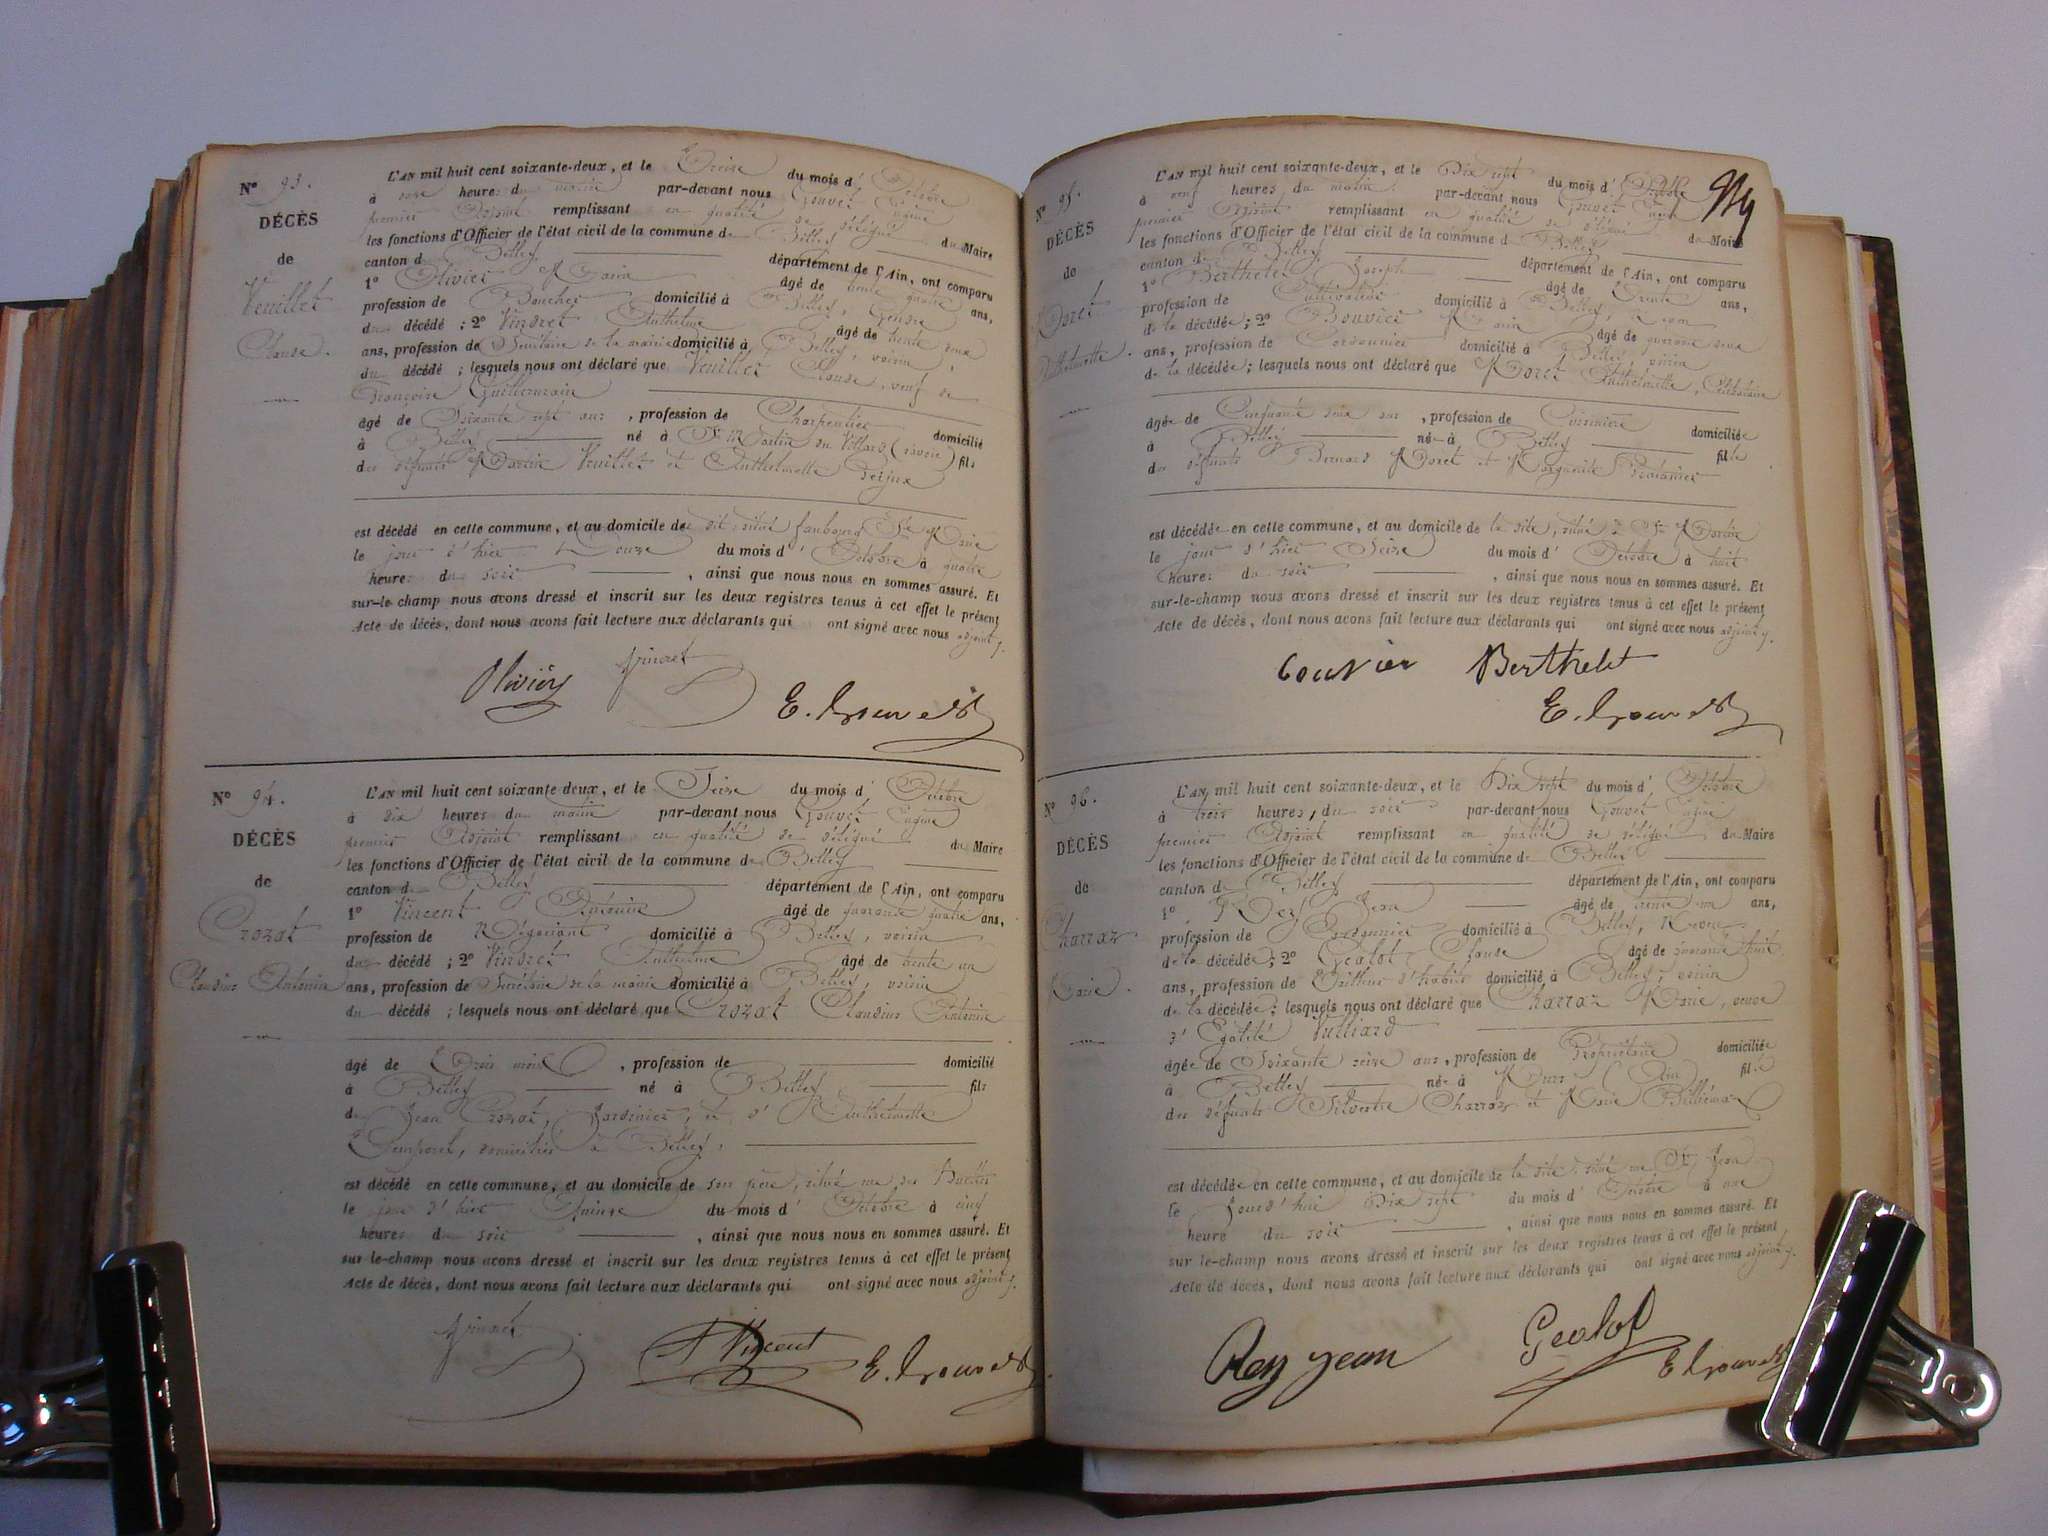 N° 93.
DÉCÈS
de
Veuillet
Claude.
L'AN mil huit cent soixante-deux, et le Treize du mois d' Octobre
à onze heures du matin par-devant nous Gouvet Eugène
premier Adjoint remplissant en qualité de délégué du Maire
les fonctions d'Officier de l'état civil de la commune de Belley
canton de Belley département de l'Ain, ont comparu
1° Olivier Marin âgé de trente quatre ans,
profession de Boucher domicilié à Belley, Gendre
du décédé ; 2° Vindret Anthelme âgé de trente deux
ans, profession de Secrétaire de la mairie domicilié à Belley, voisin
du décédé ; lesquels nous ont déclaré que Veuillet Claude, veuf de
Françoise Guillermain
âgé de Soixante sept ans, profession de Charpentier domicilié
à Belley né à St Martin du Villard (Savoie) fils
des défunts Martin Veuillet et Anthelmette
est décédé en cette commune, et au domicile de dit, situé faubourg Ste Marie
le jour d'hier Douze du mois d' Octobre à quatre
heures du soir, ainsi que nous nous en sommes assuré. Et
sur-le-champ nous avons dressé et inscrit sur les deux registres tenus à cet effet le présent
Acte de décès, dont nous avons fait lecture aux déclarants qui ont signé avec nous adjoint
Olivier Vindret
E. Gouvet
N° 94.
DÉCÈS
de
Crozat
Claudius Antonin
L'AN mil huit cent soixante-deux, et le Seize du mois d' Octobre
à dix heures du matin par-devant nous Gouvet Eugène
premier Adjoint remplissant en qualité de délégué du Maire
les fonctions d'Officier de l'état civil de la commune de Belley
canton de Belley département de l'Ain, ont comparu
1° Vincent Antoine âgé de quarante quatre ans,
profession de Négociant domicilié à Belley, voisin
du décédé ; 2° Vindret Anthelme âgé de trente un
ans, profession de Secrétaire de la mairie domicilié à Belley, voisin
du décédé ; lesquels nous ont déclaré que Crozat Claudius Antonin
âgé de Trois mois, profession de domicilié
à Belley né à Belley fils
de Jean Crozat, Jardinier, et d' Anthelmette
Temporel, domiciliés à Belley,
est décédé en cette commune, et au domicile de son père, situé rue des
le jour d'hier Quinze du mois d' Octobre à cinq
heures du soir, ainsi que nous nous en sommes assuré. Et
sur le-champ nous avons dressé et inscrit sur les deux registres tenus à cet effet le présent
Acte de décès, dont nous avons fait lecture aux déclarants qui ont signé avec nous adjoint
Vindret A Vincent E. Gouvet
N° 95.
DÉCÈS
de
Moret
Anthelmette.
L'AN mil huit cent soixante-deux, et le Dix sept du mois d' Octobre
à neuf heures du matin par-devant nous Gouvet Eugène
premier Adjoint remplissant en qualité de délégué du Maire
les fonctions d'Officier de l'état civil de la commune de Belley
canton de Belley département de l'Ain, ont comparu
1° Berthelet Joseph âgé de Trente ans,
profession de Cultivateur domicilié à Belley,
de la décédée ; 2° Bouvier Marin âgé de quarante deux
ans, profession de Cordonnier domicilié à Belley, voisin
de la décédée ; lesquels nous ont déclaré que Moret Anthelmette, Célibataire
âgée de Cinquante deux ans, profession de Cuisinière domiciliée
à Belley née à Belley fille
des défunts Bernard Moret et Marguerite
est décédée en cette commune, et au domicile de la dite, situé à St Martin
le jour d'hier Seize du mois d' Octobre à huit
heures du soir, ainsi que nous nous en sommes assuré. Et
sur-le-champ nous avons dressé et inscrit sur les deux registres tenus à cet effet le présent
Acte de décès, dont nous avons fait lecture aux déclarants qui ont signé avec nous adjoint
Bouvier Berthelet
E. Gouvet
N° 96.
DÉCÈS
de
Charraz
Marie.
L'AN mil huit cent soixante-deux, et le Dix sept du mois d' Octobre
à trois heures du soir par-devant nous Gouvet Eugène
premier Adjoint remplissant en qualité de délégué du Maire
les fonctions d'Officier de l'état civil de la commune de Belley
canton de Belley département de l'Ain, ont comparu
1° Rey Jean âgé de trente un ans,
profession de Cordonnier domicilié à Belley, Neveu
de la décédée ; 2° Gealot Claude âgé de quarante huit
ans, profession de Tailleur d'habits domicilié à Belley, voisin
de la décédée ; lesquels nous ont déclaré que Charraz Marie, veuve
d' Égalité Vulliard
âgée de Soixante seize ans, profession de Propriétaire domiciliée
à Belley née à (Ain) fille
des défunts Silvestre Charraz et Marie
est décédée en cette commune, et au domicile de la dite, situé rue St Jean
le Jourd'hui Dix sept du mois d' Octobre à une
heure du soir, ainsi que nous nous en sommes assuré. Et
sur le-champ nous avons dressé et inscrit sur les deux registres tenus à cet effet le présent
Acte de décès, dont nous avons fait lecture aux déclarants qui ont signé avec nous adjoint
Rey jean Gealot E Gouvet